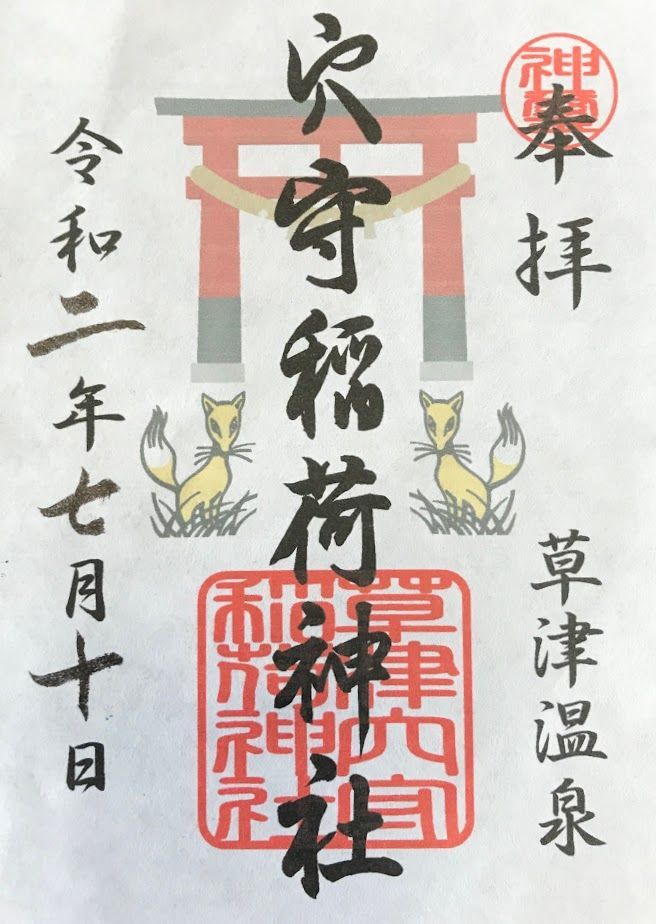 奉拝
草津温泉
穴守稲荷神社
令和二年七月十日
草津穴守
稲荷神社